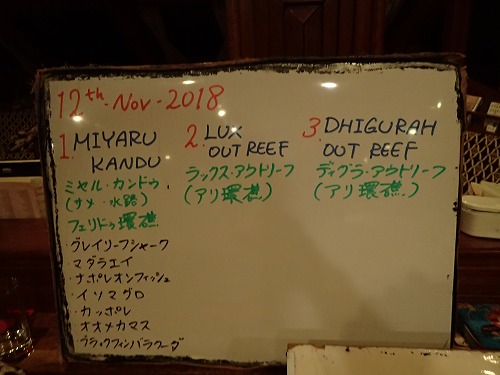 12th-Nov-2018
1. MIYARU
KANDU
ミヤル・カンドゥ
(サメ・水路)
フェリドゥ環礁
・グレイリーフシャーク
マダラエイ
・ナポレオンフィッシュ
・イソマグロ
・カッポレ
オオメカマス
・ブラックフィンバラクーダ
2. LUX
OUT REEF
ラックス・アウトリーフ
(アリ環礁)
3. DHIGURAH
OUT REEF
ディグラ・アウトリーフ
(アリ環礁)